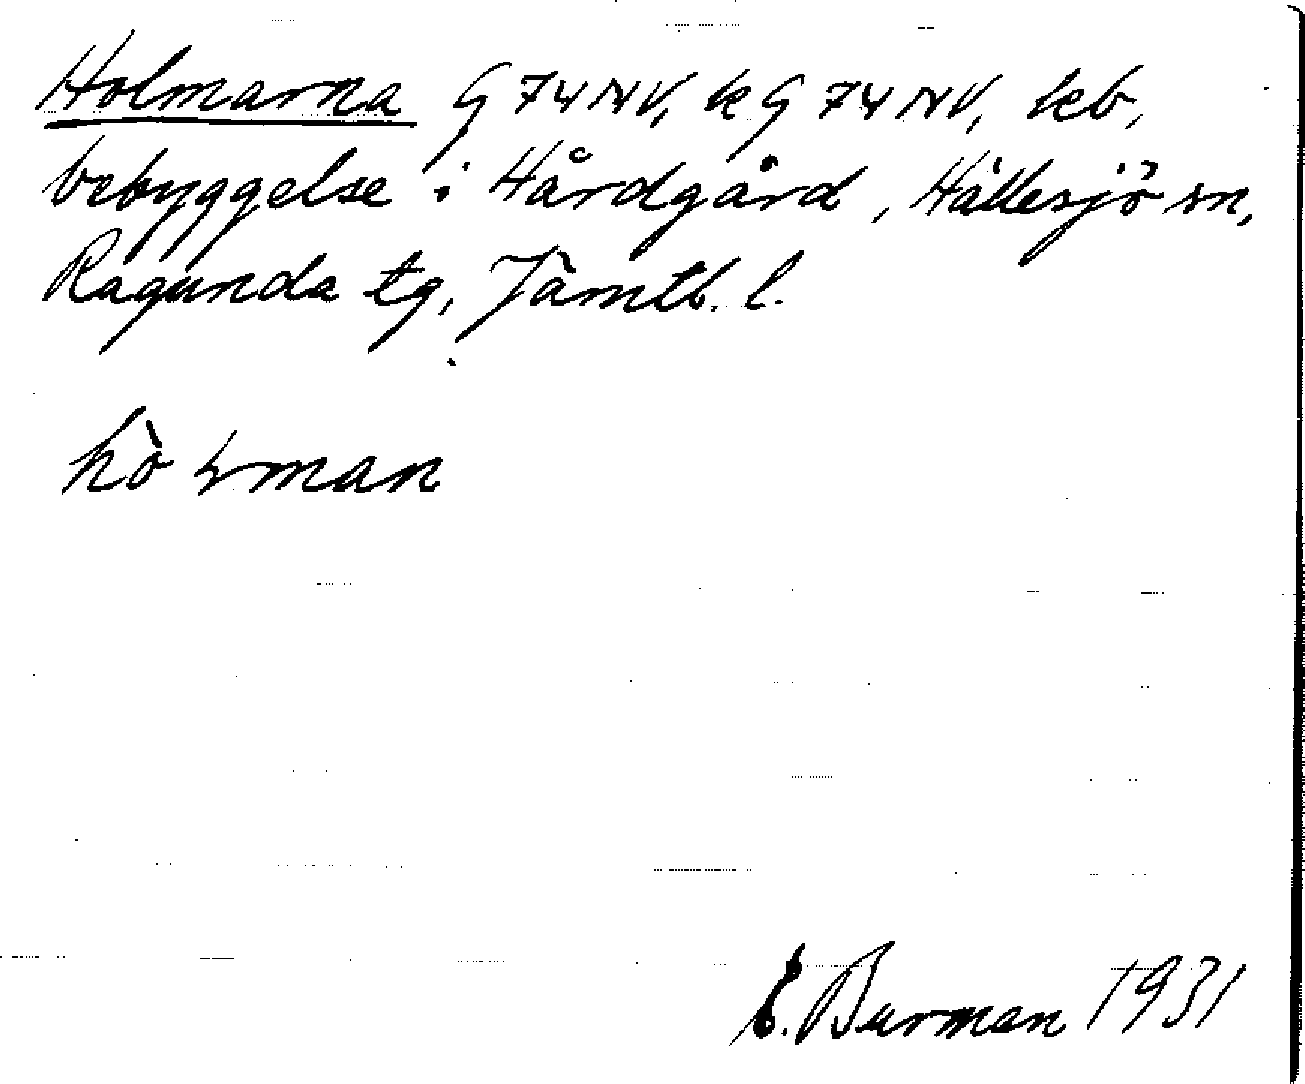 Holmarna G 74 NV, k G 74 NV, kb,
bebyggelse i Hårdgård, Hällesjö sn,
Ragunda tg, Jämtl. l.
hò
E. Burman 1931